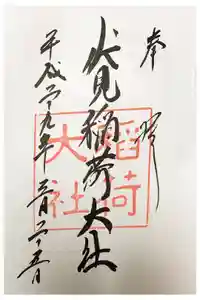 奉拝
伏見稲荷大社
稲荷
大社
平成二十九年三月二十五日